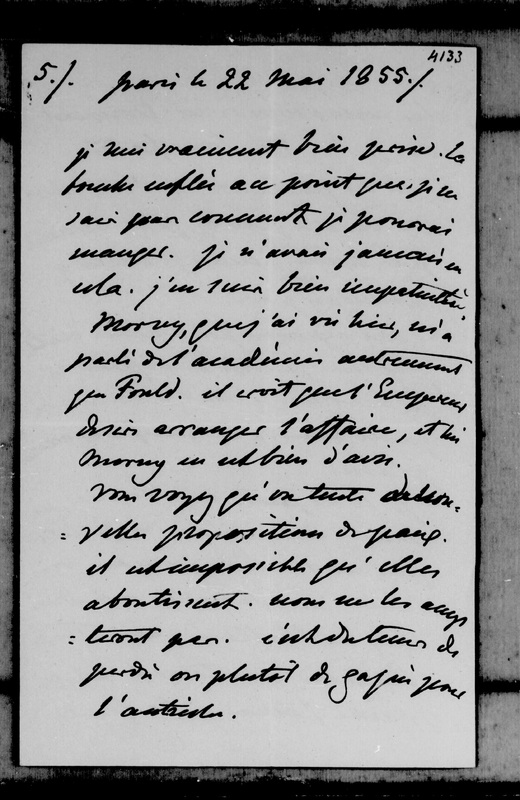 4133
5./. paris le 22 Mai 1855./.
je suis vraiment bien prise. la
bouche enflée au point que je ne
sais pas comment je pourrai
manger. je n'avais jamais eu
cela. j'en suis bien impatientée.
Morny, que j'ai vu hier, m'a
parlé de l'académie autrement
que Fould. il croit que l'Empereur
désire arranger l'affaire, et lui
Morny en est bien d'avis.
Vous voyez qu'on tente de nou=
=velles propositions de paix.
il est impossible qu'elles
aboutissent. nous ne les accep
=terons pas. c'est du tems de
perdu ou plutot de gagné pour
l'autriche.